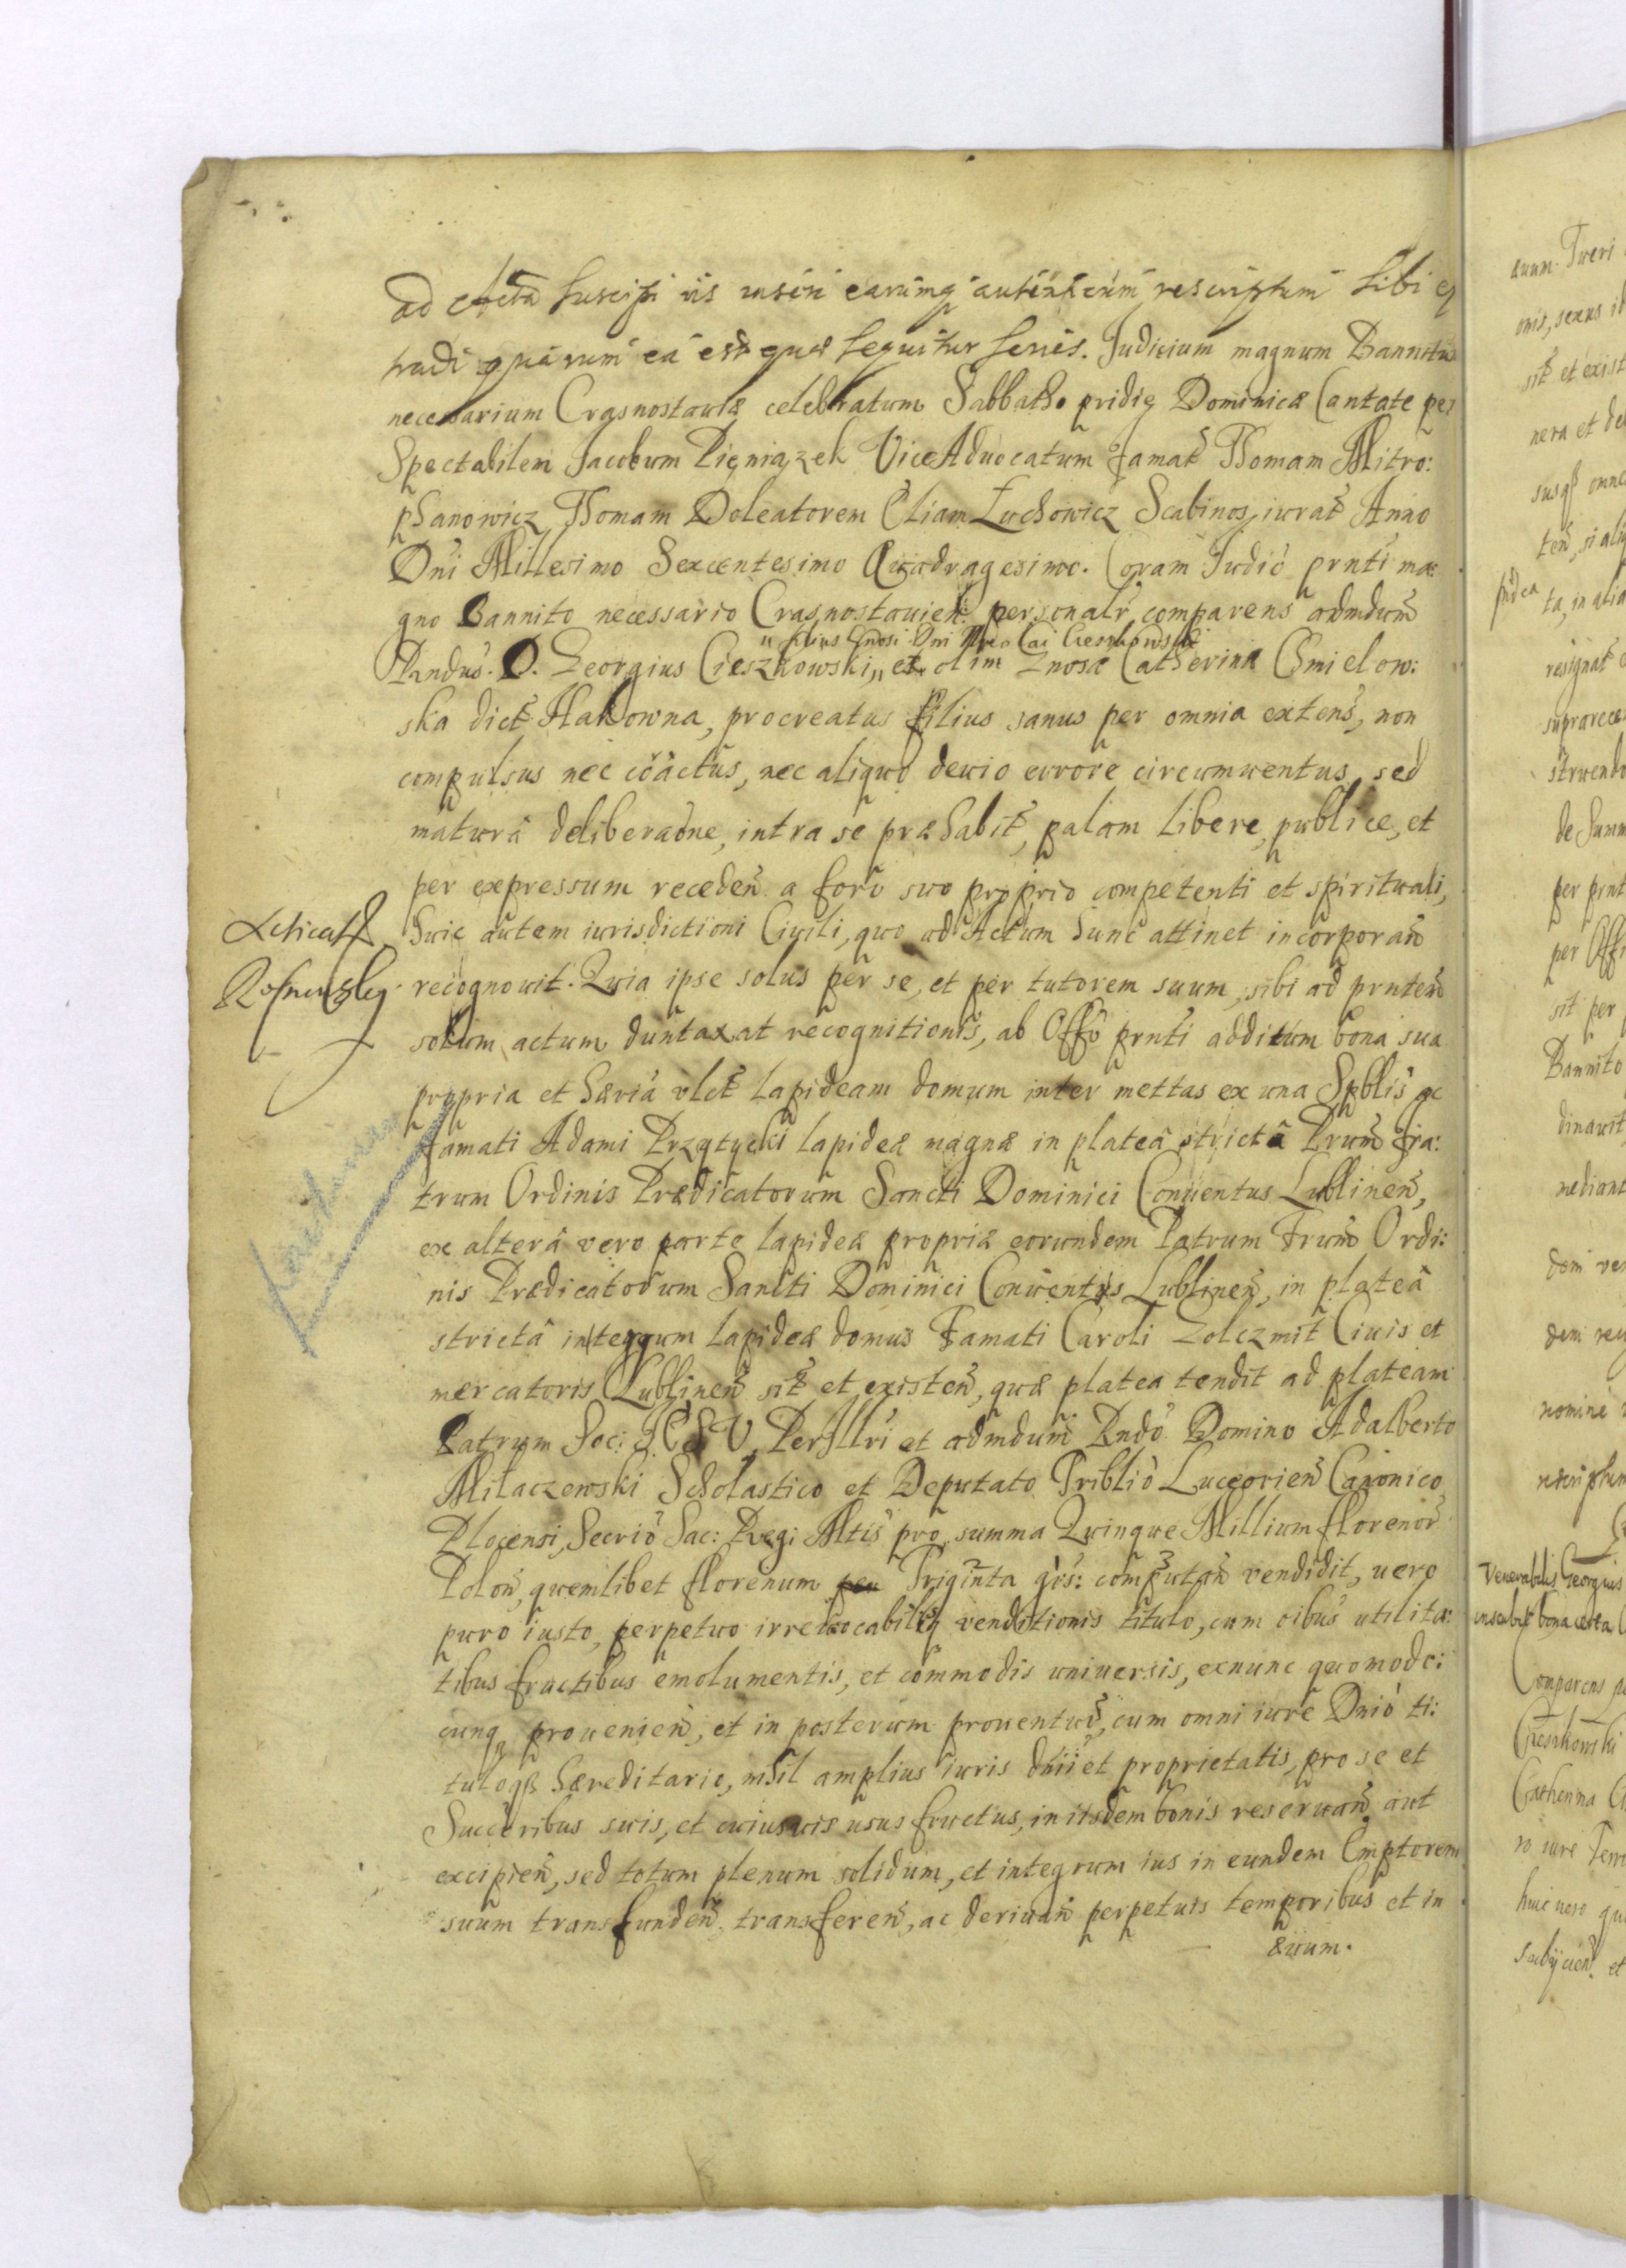 ad Acta suscipi iis inseri earumq autenticum rescriptum sibi
tradi quarum ea est quæ sequitur series. Judicium magnum Bannitū
necessarium Crasnostauiæ celebratum Sabbatho pridie Dominicæ Cantate per
Spectabilem Jacobum Pieniązek ViceAduocatum Famat Thomam Mitro:
phanowicz, Thomam Doleatorem Eliam Łuchowicz Scabinos, iurat Anno
Dni Millesimo Sexcentesimo Quadragesimo. Coram Judio prnti ma:
gno Bannito necessario Crasnostauien: personalr comparens admdum
„ filius Gnosi Dni Nicolai Cieszkowski
Rndus. D. Georgius Cieszkowski „ et olim Gnosæ Catherinæ Chmielow:
ska dict Hakowna, procreatus filius sanus per omnia extens, non
compulsus nec coactus, nec aliquo deuio errore circumuentus, sed
maturâ deliberaone, intra se præhabit, palam libere, publice, et
per expressum receden a foro suo proprio competenti et spirituali,
huic autem iurisdictioni Ciuili, quo ad Actum hunc attinet incorporan
recognouit. Quia ipse solus per se, et per tutorem suum, sibi ad prnten
solum actum duntaxat recognitionis, ab Offo prnti additum bona sua
propria et hæria vlct Lapideam domum inter mettas ex una Spblis ac
Famati Adami Przytycki lapideæ magnæ in plateâ strictâ Prum Fra:
trum Ordinis Prædicatorum Sancti Dominici Conuentus Lublinen,
ex alterâ vero parte lapideæ propriæ eorundem Patrum Frum Ordi:
nis Prædicatorum Sancti Dominici Conuentus Lublinen, in plateâ
strictâ in tergum lapideæ domus Famati Caroli Golczmit Ciuis et
mercatoris Lublinen sit et existen, quæ platea tendit ad plateam
Patrum Soc: JESV, PerIllri et admdum Rndo Domino Adalberto
Miłaczewski Scholastico et Deputato Triblio Luceorien Canonico
Plocensi, Secrio Sac: Reg: Mtis pro summa Quinque Millium florenor
Polon, quemlibet florenum per Triginta grs: computan vendidit, uero
puro iusto, perpetuo irreuocabiliq venditionis titulo, cum oibus utilita:
tibus fructibus emolumentis, et commodis uniuersis, exnunc quomodo:
cunq prouenien, et in posterum prouentur, cum omni iure Dnio ti:
tuloq hæreditario, nihil amplius iuris dnii et proprietatis, pro se et
Succeribus suis, et cuiusuis usus fructus, in iisdem bonis reseruan aut
excipien, sed totum plenum solidum, et integrum ius in eundem Emptorem
suum transfunden, transferen, ac deriuan perpetuis temporibus et in
æuum.